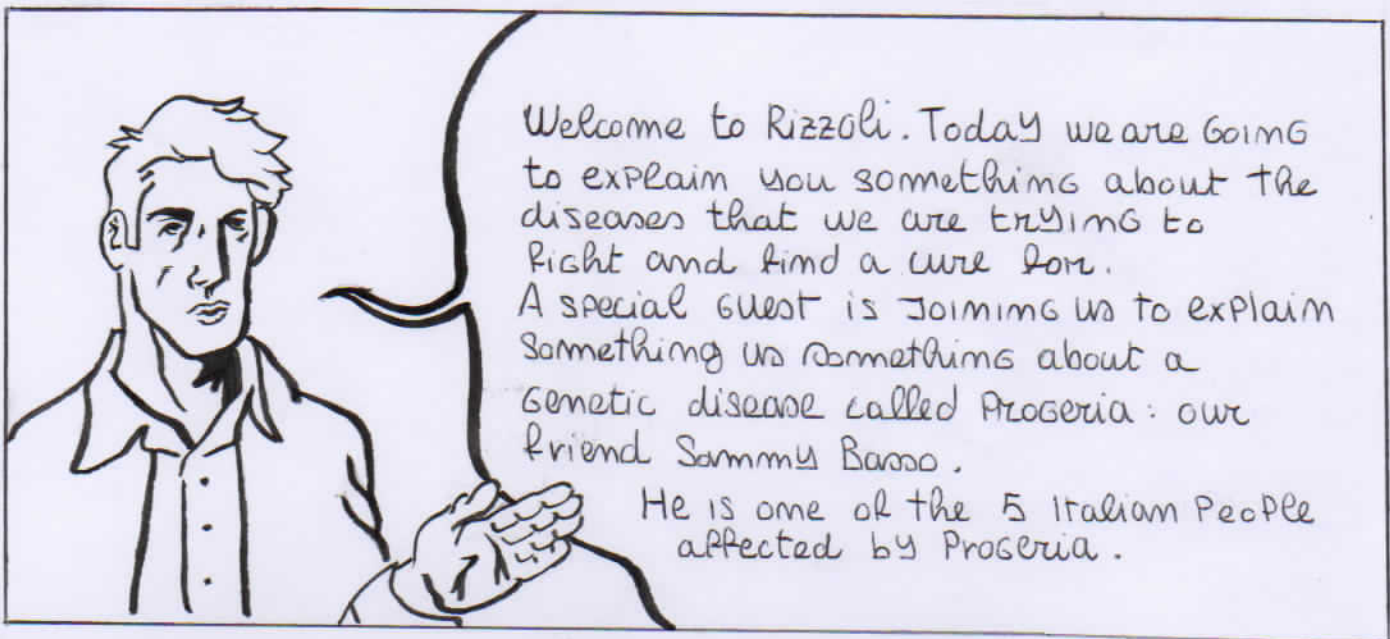 Welcome to Rizzoli. Today we are Going
to explain you something about the
diseases that we are trying to
fight and find a cure for.
A special guest is Joining us to explain
something us something about a
Genetic disease called Progeria: our
friend Sammy Basso.
He is one of the 5 Italian People
affected by Progeria.